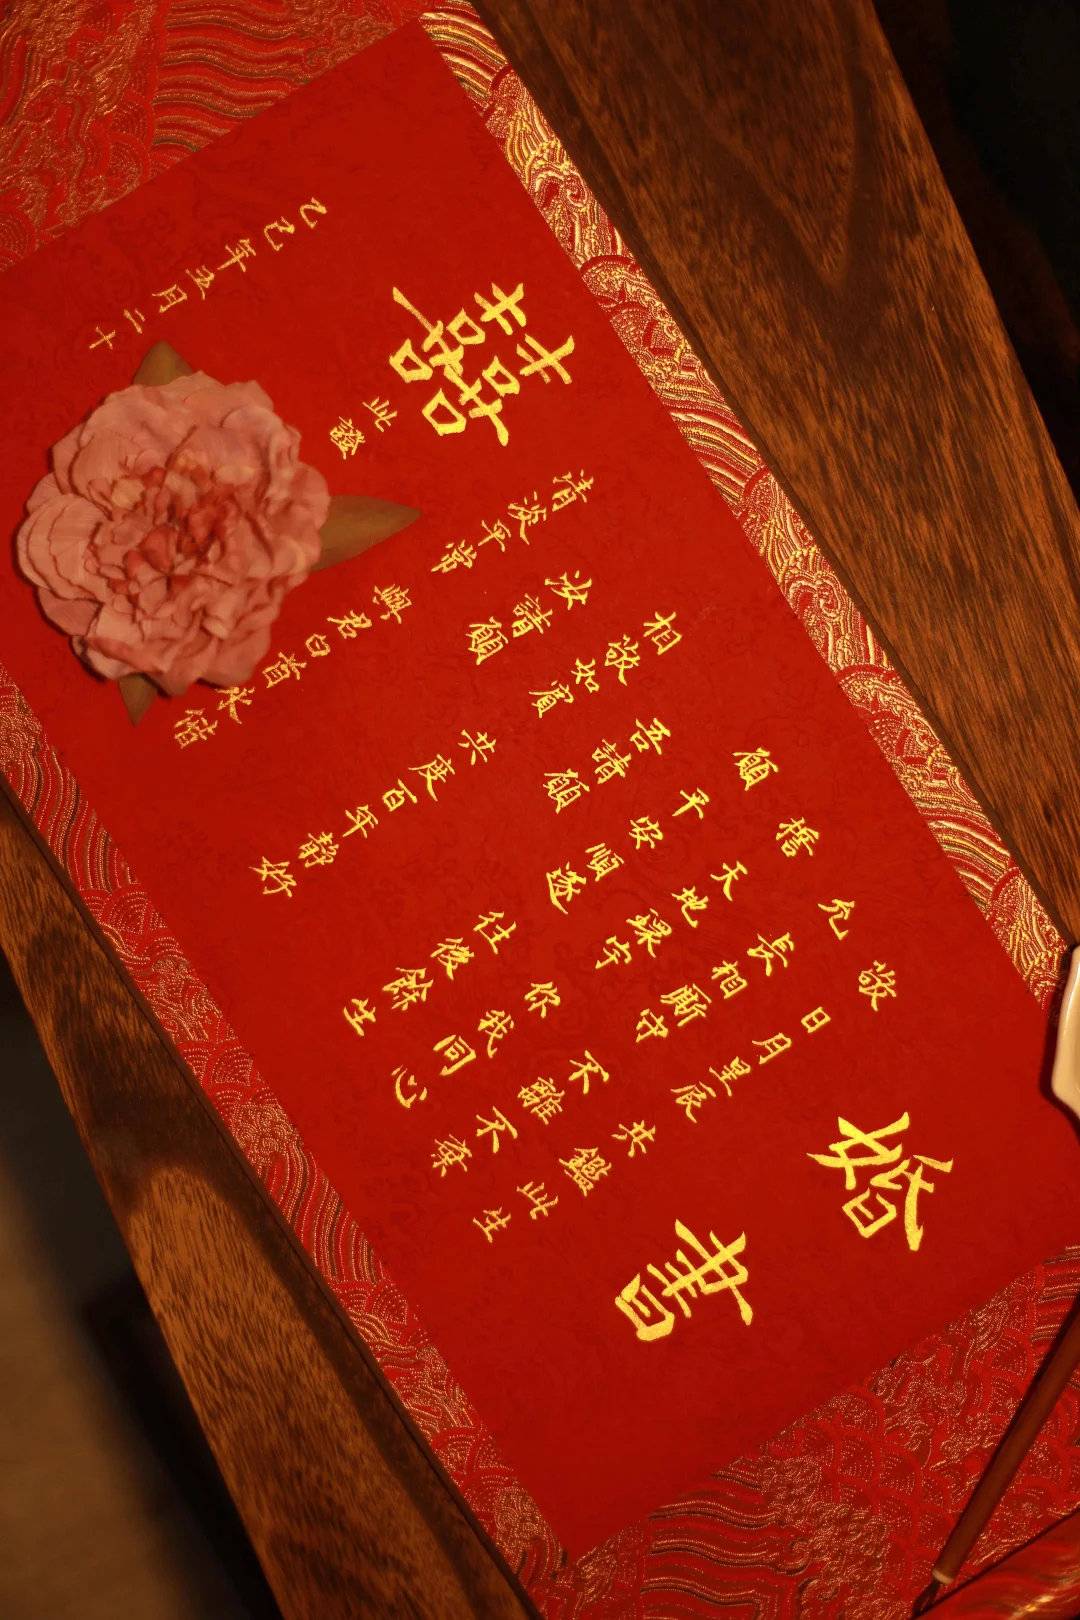 婚書
敬 日月星辰 共鑑此生
允 長相厮守 不離不棄
誓 天地環宇 你我同心
願 平安順遂 往後餘生
吾請願
相敬如賓 共度百年静好
汝請願
清淡平常 與君白首永偕
囍 此證
乙巳年五月二十